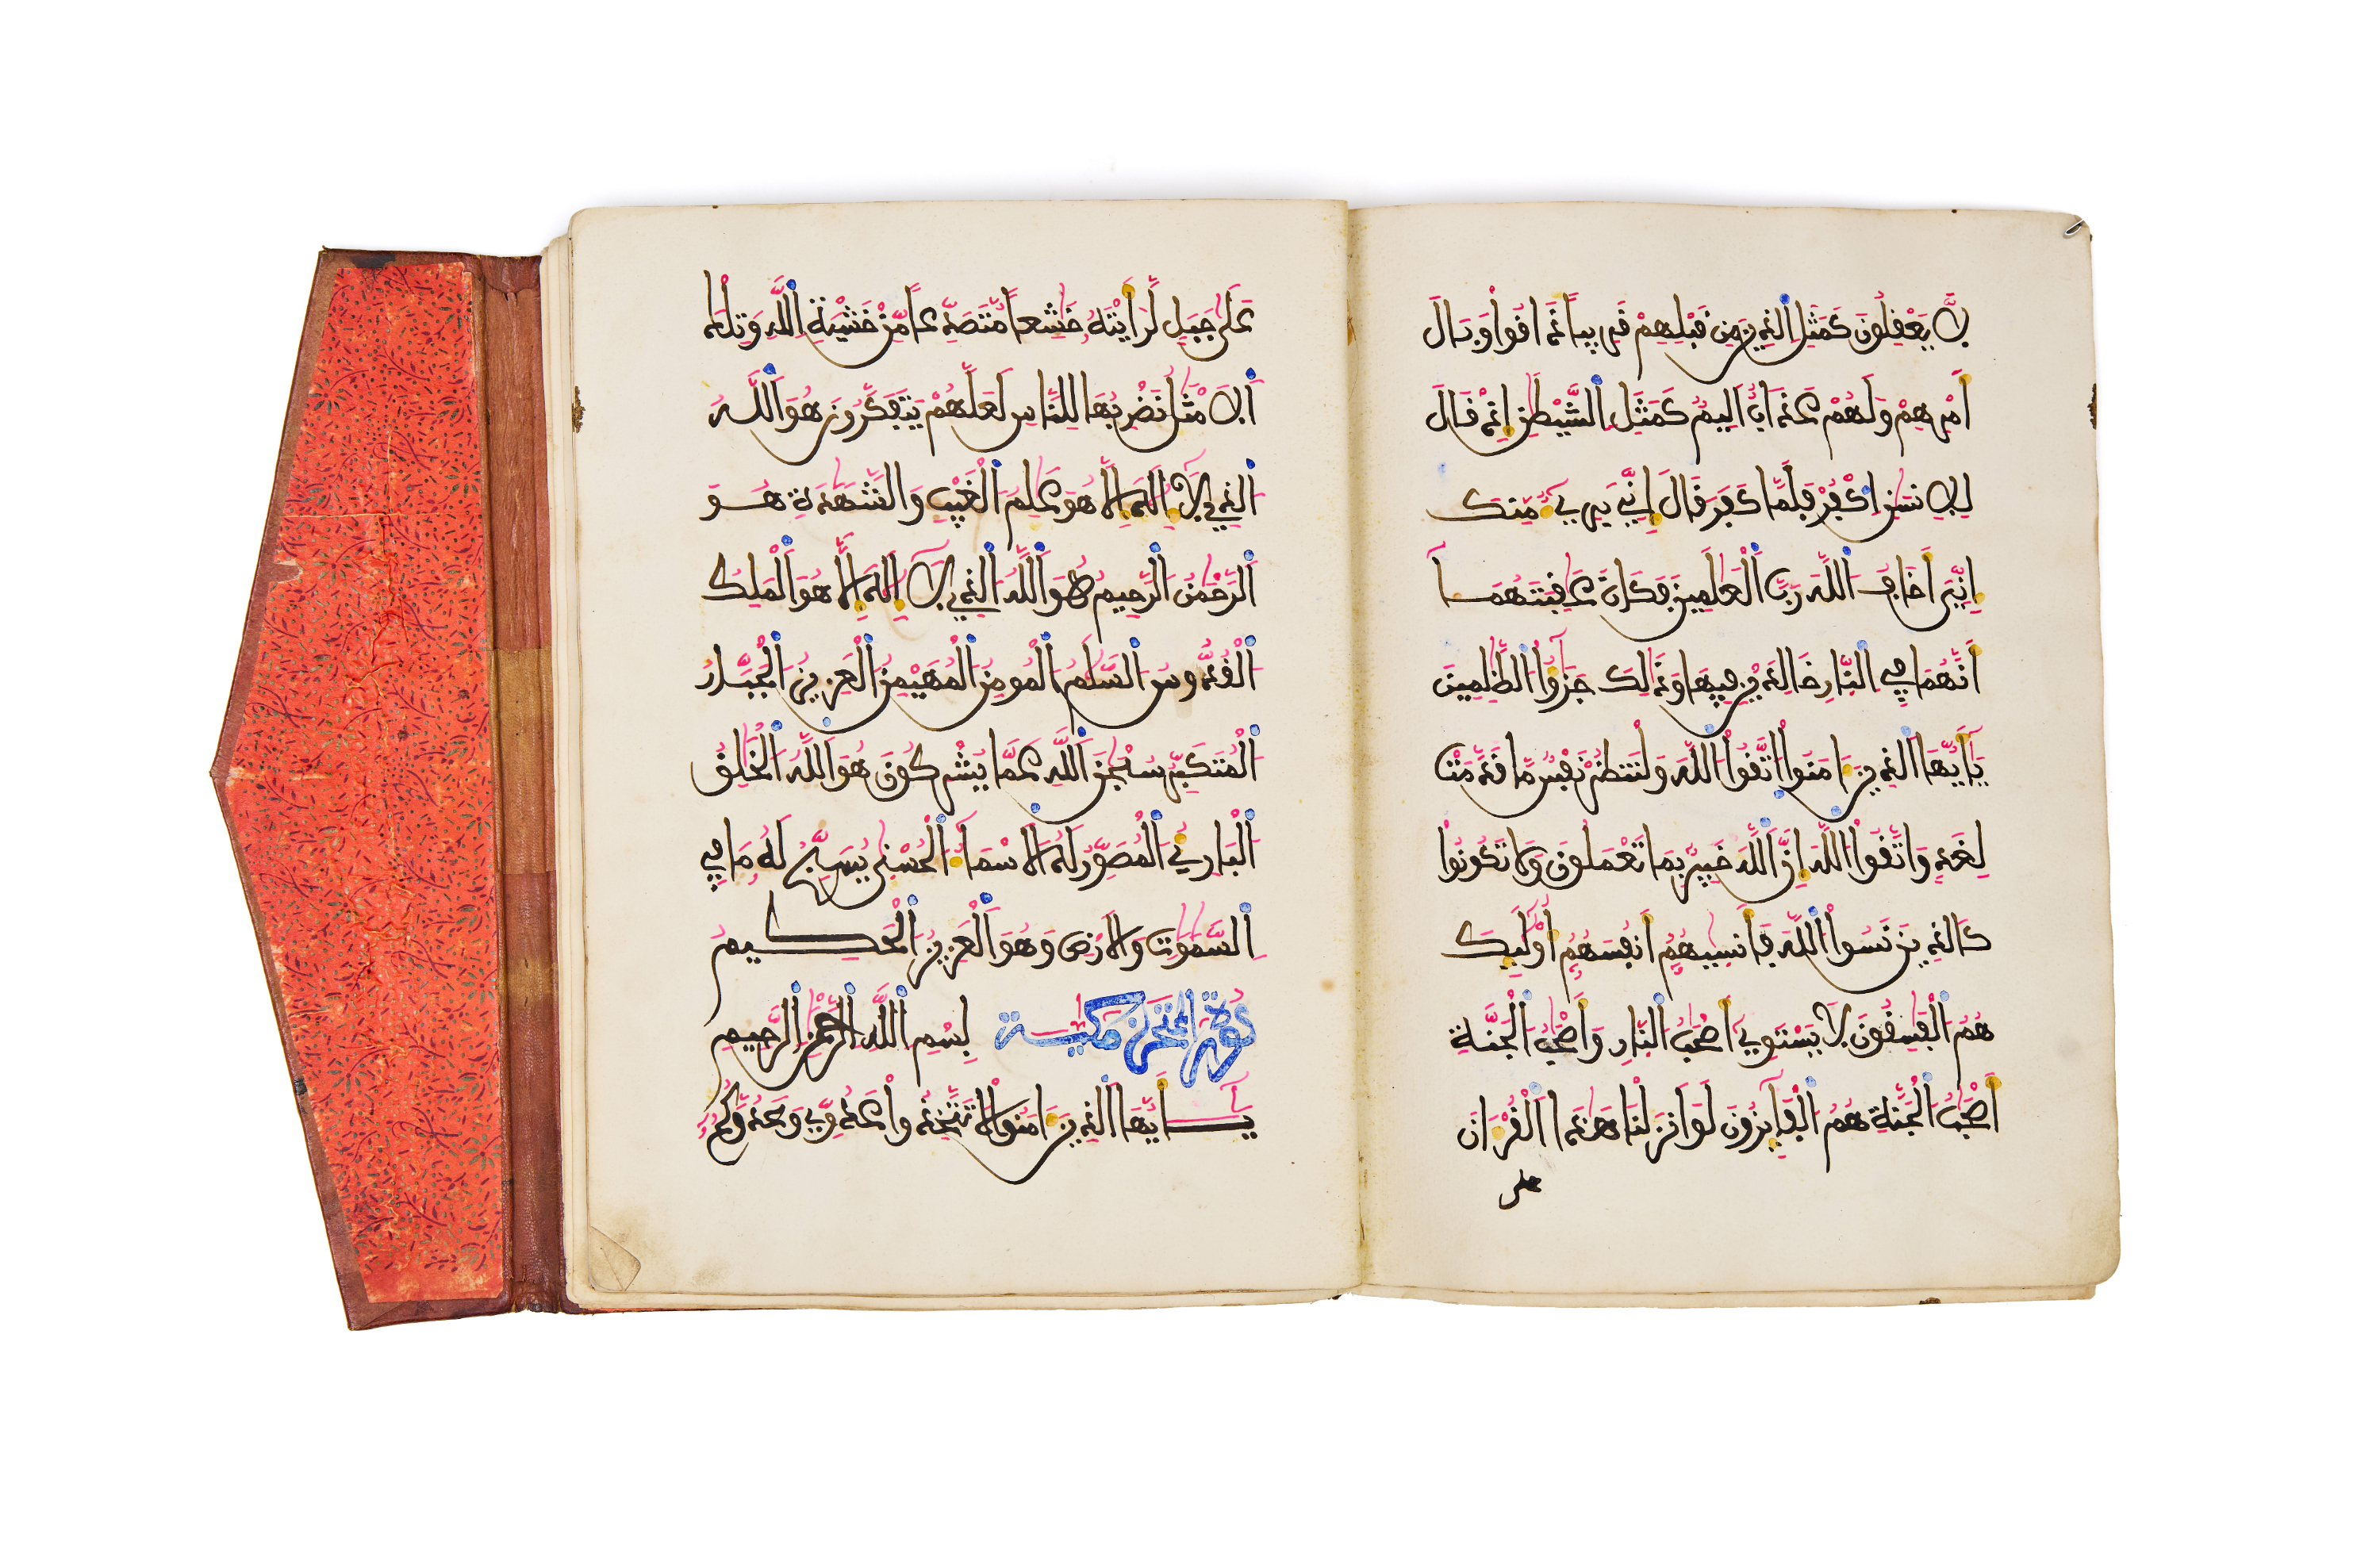 لَّا يَعْقِلُونَ كَمَثَلِ الذِينَ مِن قَبْلِهِمْ قَرِيباً ذَاقُواْ وَبَالَ
أَمْرِهِمْ وَلَهُمْ عَذَابٌ أَلِيمٌ كَمَثَلِ الشَّيْطَٰنِ إِذْ قَالَ
لِلِانسَٰنِ اكْفُرْ فَلَمَّا كَفَرَ قَالَ إِنِّي بَرِيٓءٌ مِّنكَ
إِنِّيَ أَخَافُ اللَّهَ رَبَّ الْعَٰلَمِينَ فَكَانَ عَٰقِبَتَهُمَا
أَنَّهُمَا فِي النَّارِ خَٰلِدَيْنِ فِيهَا وَذَٰلِكَ جَزَٰٓؤُاْ الظَّٰلِمِينَ
يَٰٓأَيُّهَا الذِينَ ءَامَنُواْ اتَّقُواْ اللَّهَ وَلْتَنظُرْ نَفْسٌ مَّا قَدَّمَتْ
لِغَدٍ وَاتَّقُواْ اللَّهَ إِنَّ اللَّهَ خَبِيرٌ بِمَا تَعْمَلُونَ وَلَا تَكُونُواْ
كَالذِينَ نَسُواْ اللَّهَ فَأَنسَىٰهُمُ أَنفُسَهُمُ أُوْلَٰٓئِكَ
هُمُ الْفَٰسِقُونَ لَا يَسْتَوِيٓ أَصْحَٰبُ النَّارِ وَأَصْحَٰبُ الْجَنَّةِ
أَصْحَٰبُ الْجَنَّةِ هُمُ الْفَآئِزُونَ لَوَ اَنزَلْنَا هَٰذَا الْقُرْءَانَ
على
عَلَىٰ جَبَلٍ لَّرَأَيْتَهُۥ خَٰشِعاً مُّتَصَدِّعاً مِّنْ خَشْيَةِ اللَّهِ وَتِلْكَ
الَامْثَٰلُ نَضْرِبُهَا لِلنَّاسِ لَعَلَّهُمْ يَتَفَكَّرُونَ هُوَ اللَّهُ
الذِي لَآ إِلَٰهَ إِلَّا هُوَ عَٰلِمُ الْغَيْبِ وَالشَّهَٰدَةِ هُوَ
الرَّحْمَٰنُ الرَّحِيمُ هُوَ اللَّهُ الذِي لَآ إِلَٰهَ إِلَّا هُوَ الْمَلِكُ
الْقُدُّوسُ السَّلَٰمُ الْمُومِنُ الْمُهَيْمِنُ الْعَزِيزُ الْجَبَّارُ
الْمُتَكَبِّرُ سُبْحَٰنَ اللَّهِ عَمَّا يُشْرِكُونَ هُوَ اللَّهُ الْخَٰلِقُ
الْبَارِئُ الْمُصَوِّرُ لَهُ الَاسْمَآءُ الْحُسْنَىٰ يُسَبِّحُ لَهُۥ مَا فِي
السَّمَٰوَٰتِ وَالَارْضِ وَهُوَ الْعَزِيزُ الْحَكِيمُ
سُورَةُ الممتحنة مكية بِسْمِ اللَّهِ الرَّحْمَٰنِ الرَّحِيمِ
يَٰٓأَيُّهَا الذِينَ ءَامَنُواْ لَا تَتَّخِذُواْ عَدُوِّي وَعَدُوَّكُمُۥٓ